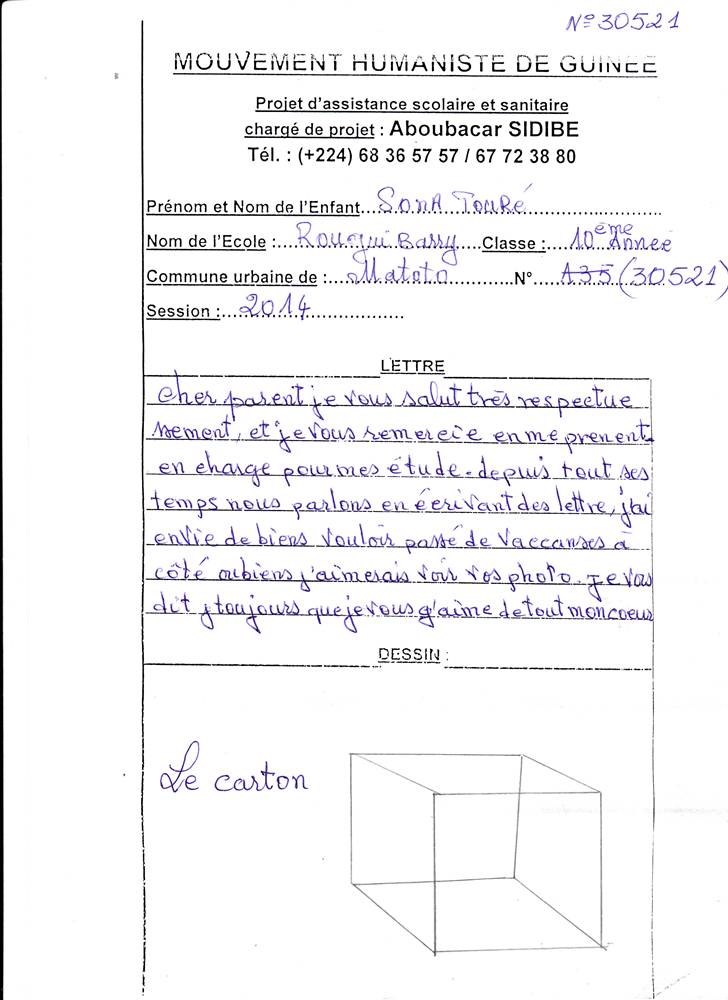 N° 30521
MOUVEMENT HUMANISTE DE GUINEE
Projet d'assistance scolaire et sanitaire
chargé de projet : Aboubacar SIDIBE
Tél. : (+224) 68 36 57 57 / 67 72 38 80
Prénom et Nom de l'Enfant... SONA TOURé
Nom de l'Ecole :... Barry Classe :... 10ème Année
Commune urbaine de :... Matoto N° ..... A35 (30521)
Session :... 2014
LETTRE
cher parent je vous salut très respectue
sement, et je vous remercie en me prenent
en charge pour mes étude. depuis tout ses
temps nous parlons en écrivant des lettre, j'ai
envie de biens vouloir passé de vaccanses à
côté oubiens j'aimerais voir vos photo. je vous
dit toujours que je vous j'aime de tout mon coeur
DESSIN :
Le carton